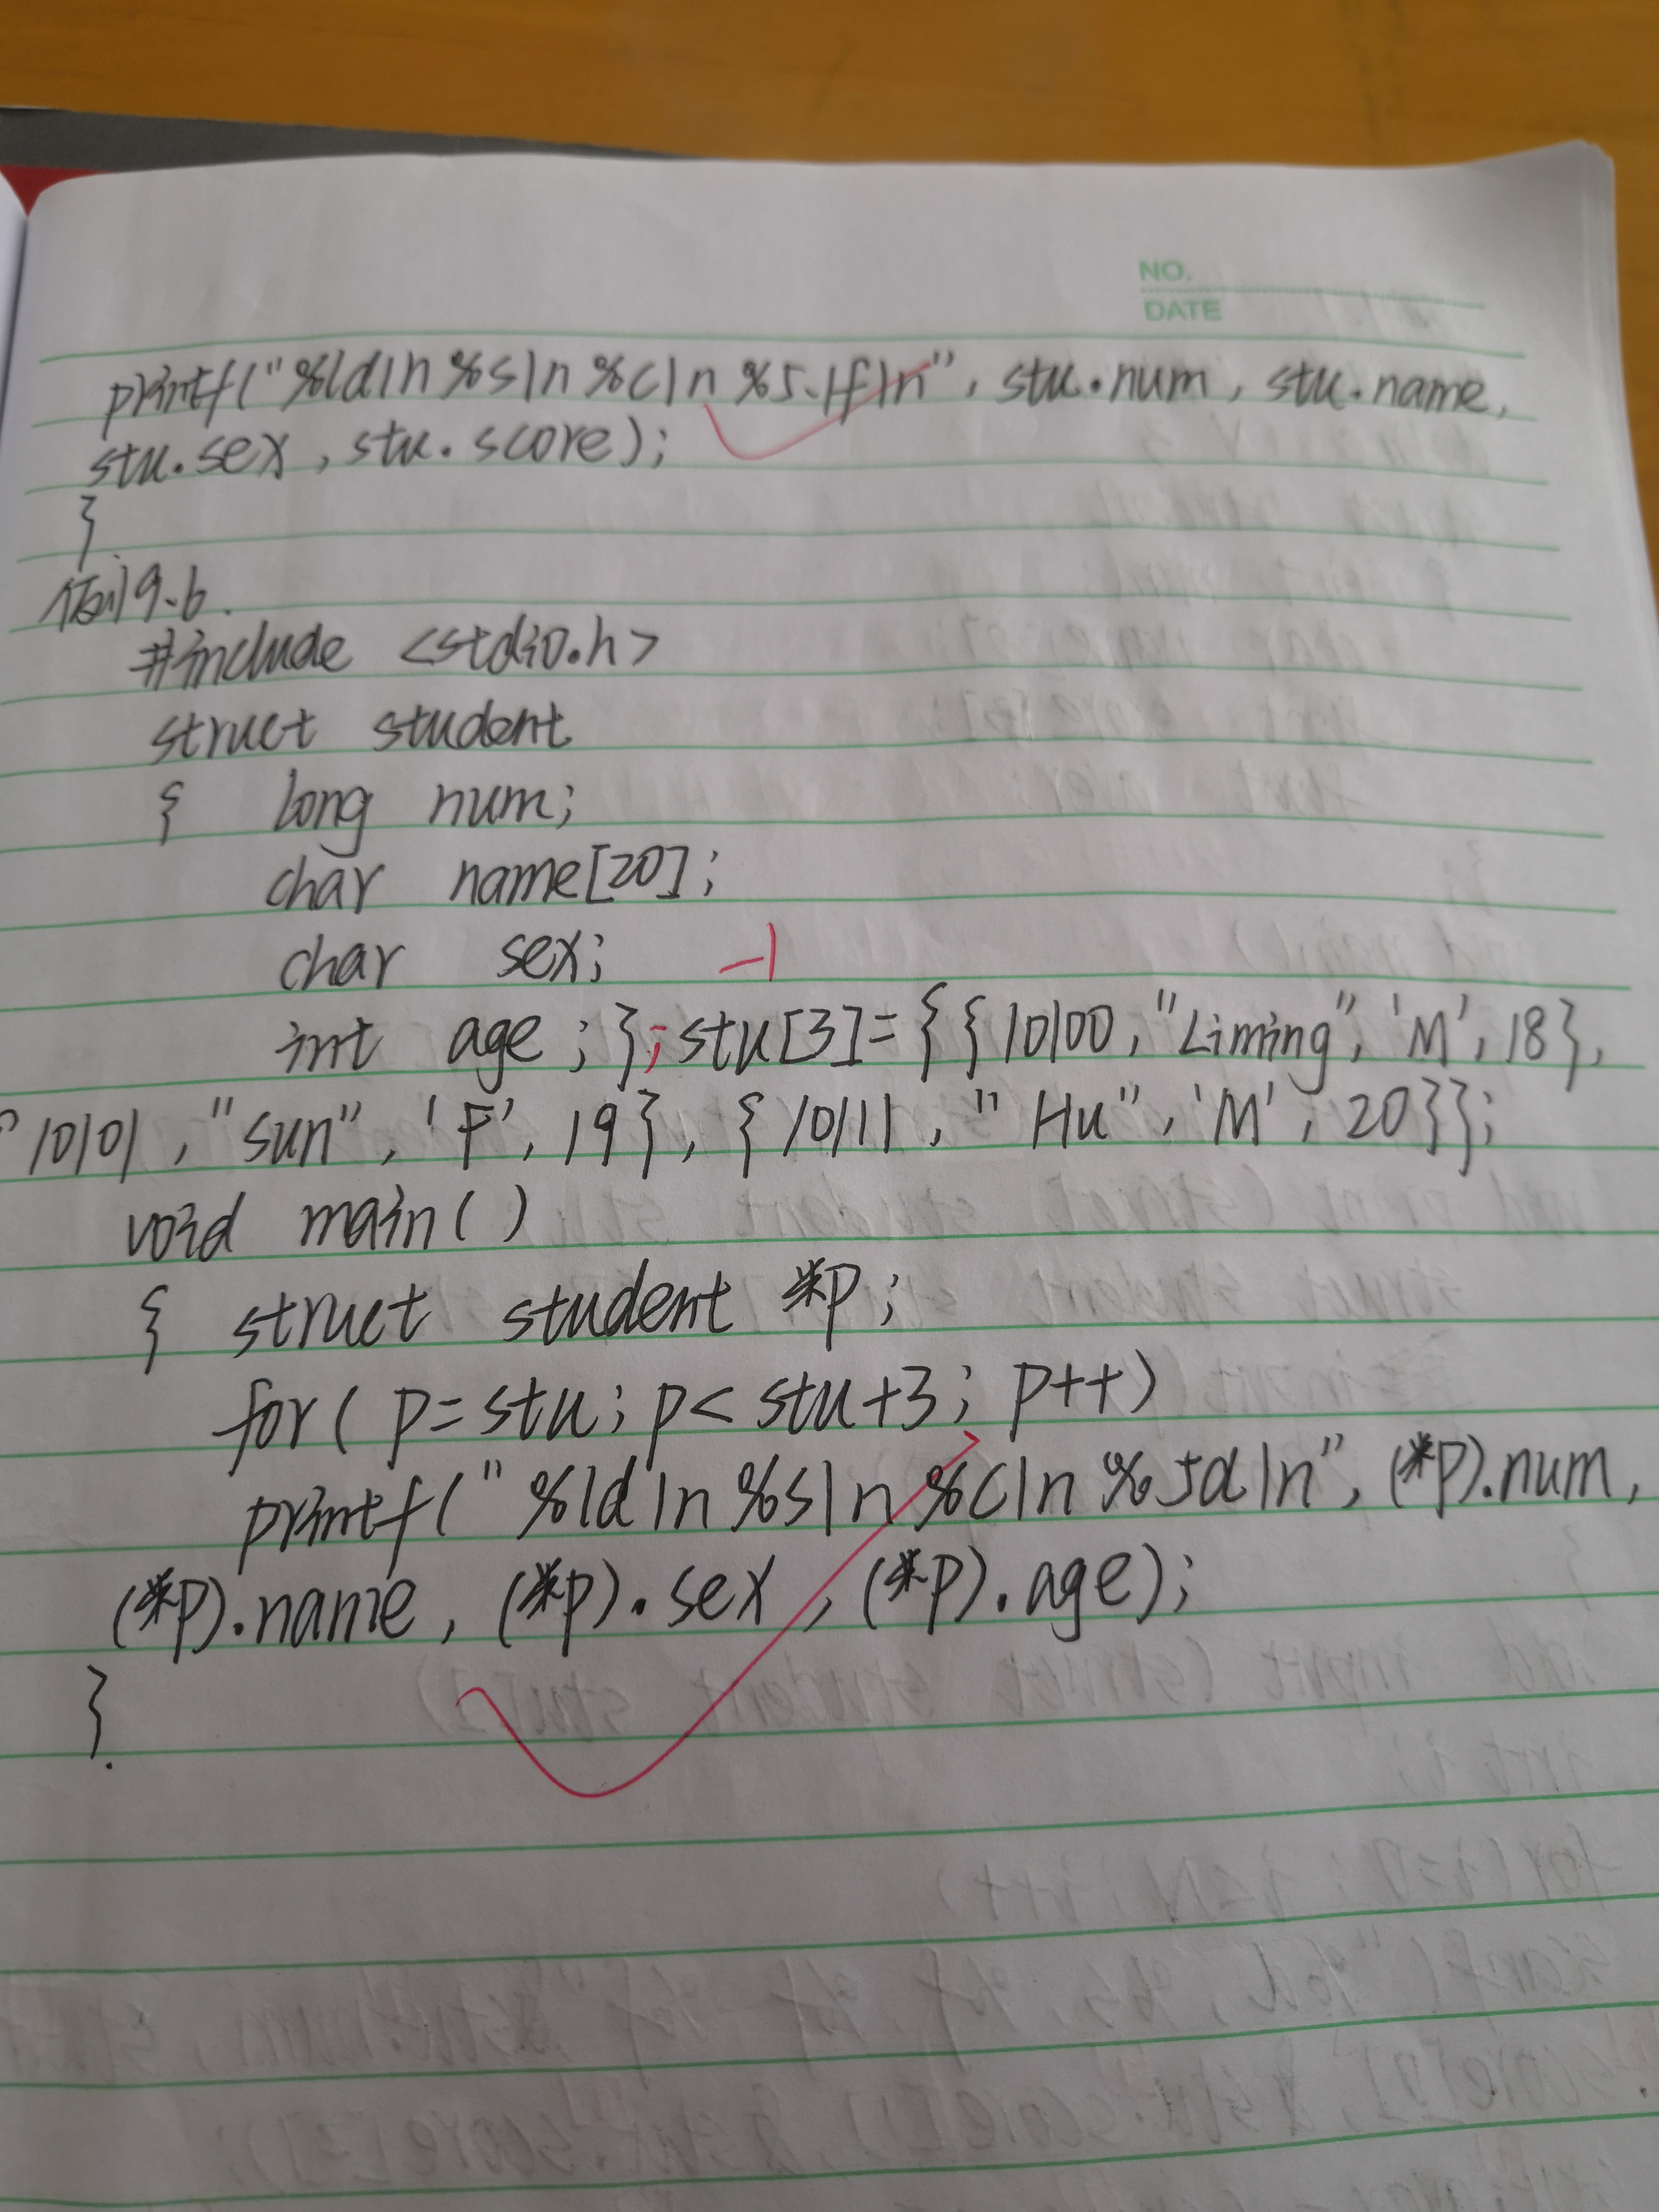 NO.
DATE
printf("%ld\n %s\n %c\n %5.1f\n", stu.num, stu.name,
stu.sex, stu.score);
}
例9.6.
#include <stdio.h>
struct student
{ long num;
char name[20];
char sex; -1
int age ; }; stu[3]={{10100, "Liming", 'M', 18},
10101, "sun", 'F', 19}, {10111, "Hu", 'M', 20}};
void main()
{ struct student *p;
for( p=stu; p<stu+3; p++)
printf(" %ld \n %s\n %c\n %5d\n", (*p).num,
(*p).name, (*p).sex, (*p).age);
}